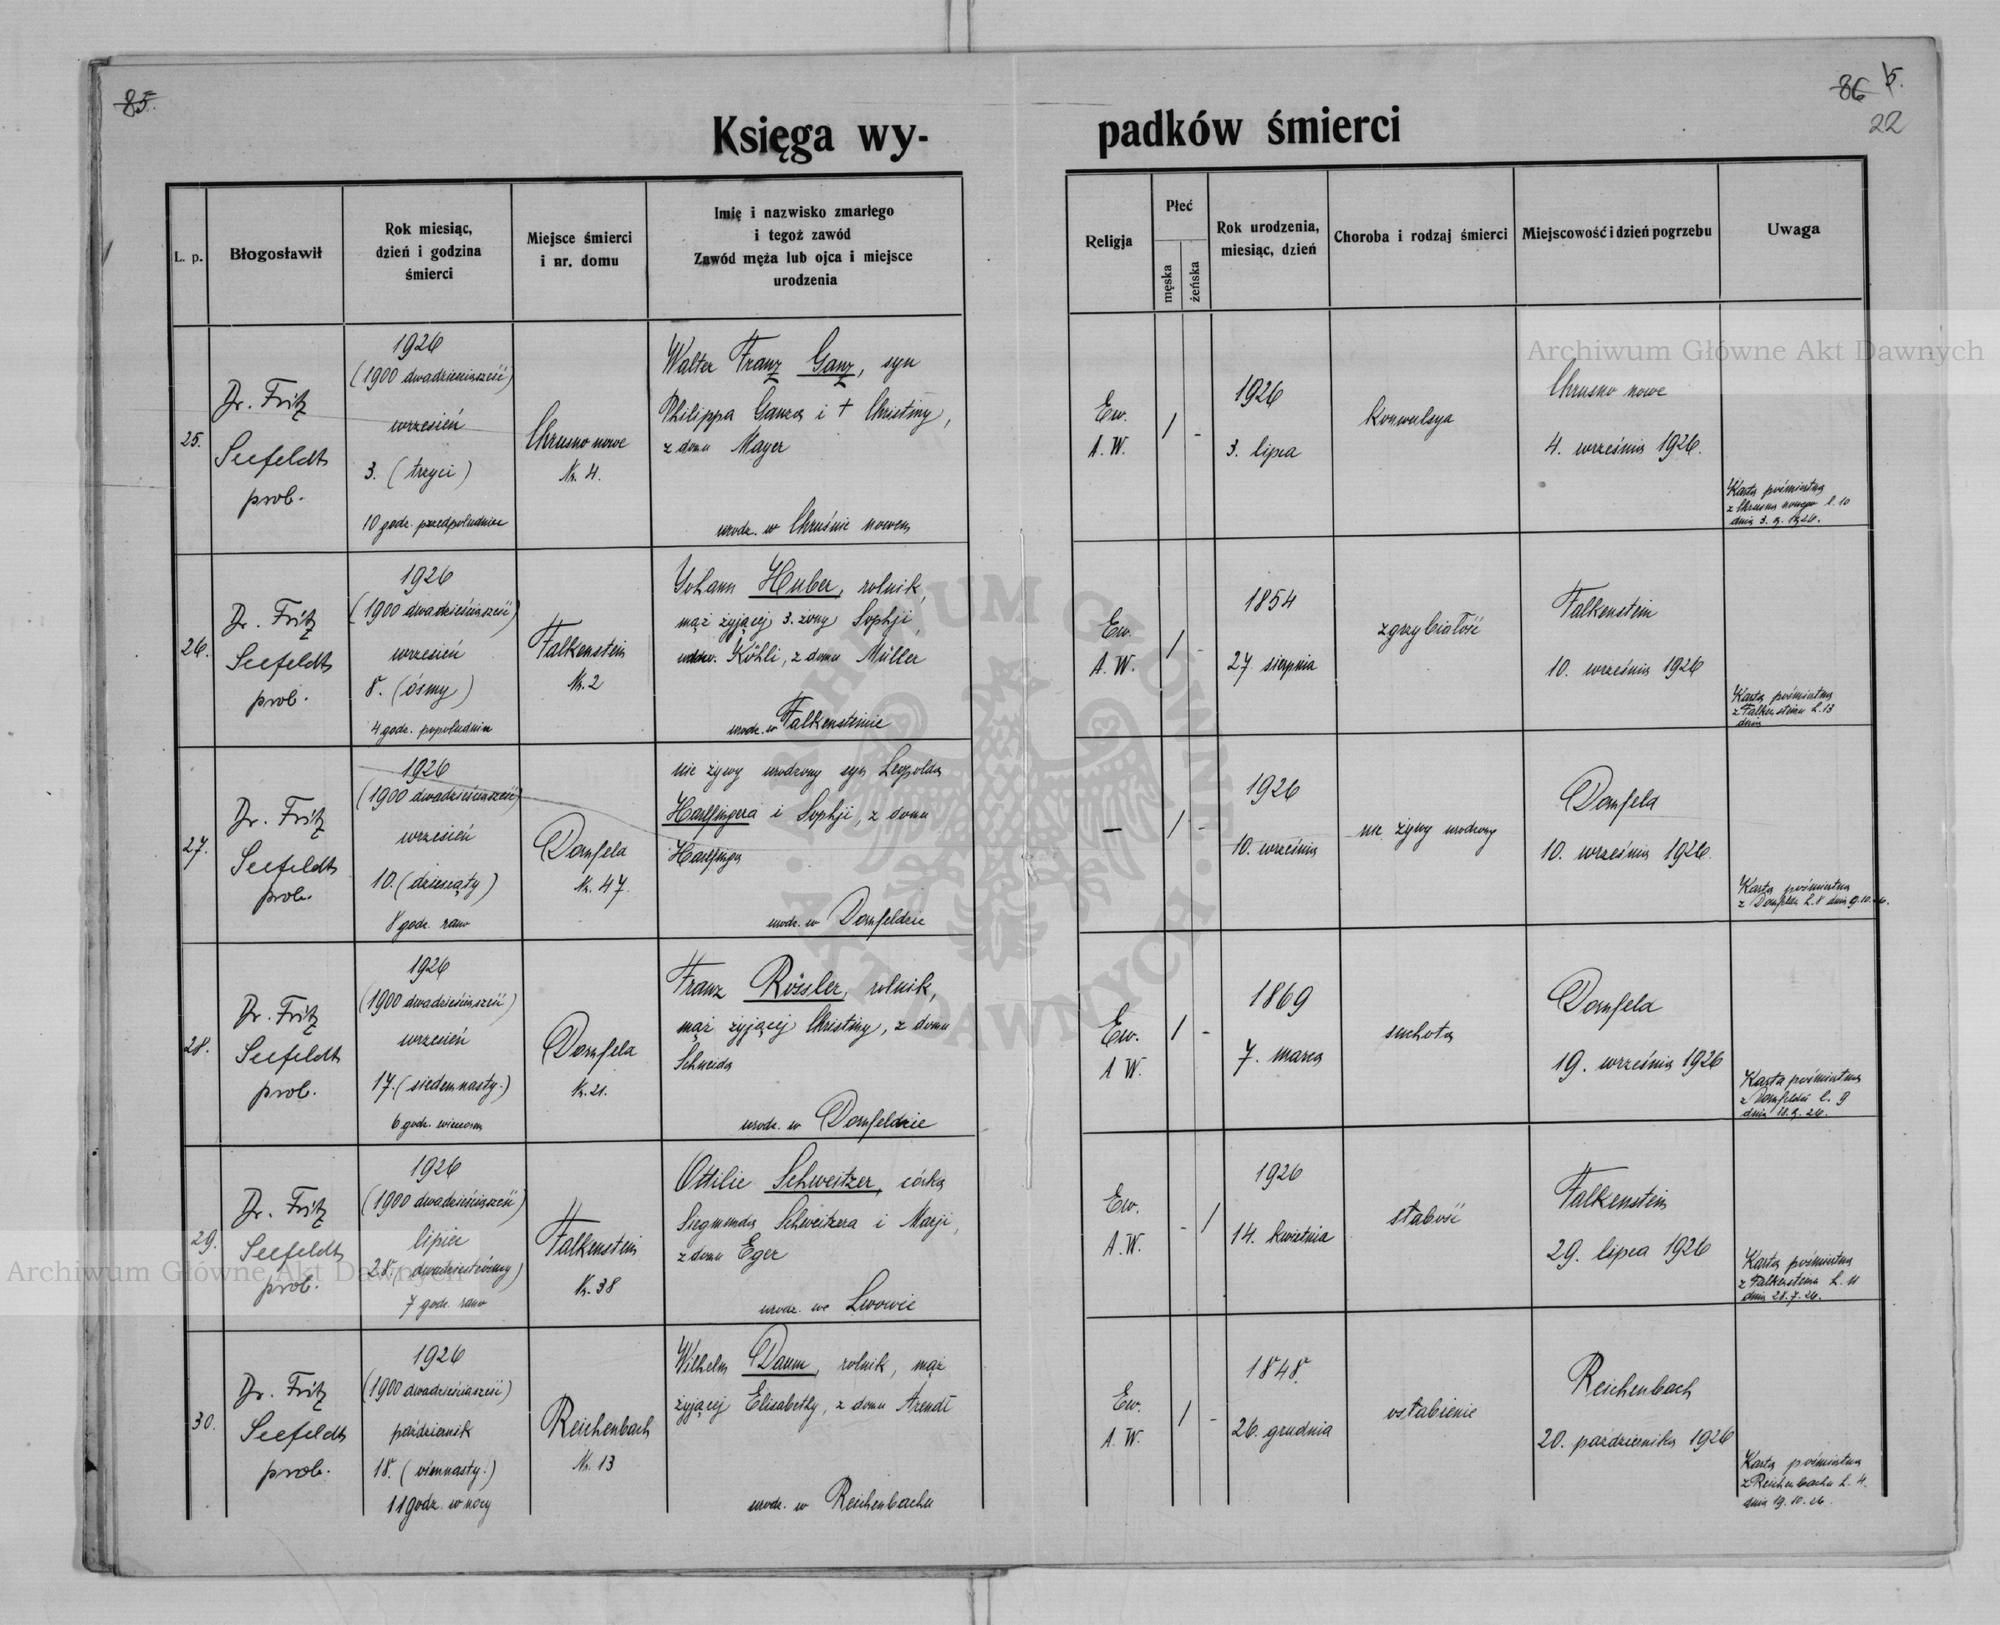 85.
86 5.
22
Księga wy-
padków śmierci
L. p.
Błogosławił
Rok miesiąc,
dzień i godzina
śmierci
Miejsce śmierci
i nr. domu
Imię i nazwisko zmarłego
i tegoż zawód
Zawód męża lub ojca i miejsce
urodzenia
Religja
Płeć
męska
żeńska
Rok urodzenia,
miesiąc, dzień
Choroba i rodzaj śmierci
Miejscowość i dzień pogrzebu
Uwaga
25.
Dr. Fritz
Seefeldt
prob.
1926
(1900 dwadzieściasześć)
wrzesień
3. (trzeci)
10 godz. przedpołudniem
Chrusno nowe
Nr. 4.
Walter Franz Ganz, syn
Philippa Ganza i + Christiny,
z domu Mayer
urodz. w Chruśnie nowem
Ew.
A. W.
/ -
1926
3. lipca
Konwulsya
Chrusno nowe
4. września 1926.
Karta pośmiertna
z Chrusna nowego l. 10
dnia 3. 9. 1926.
26.
Dr. Fritz
Seefeldt
prob.
1926
(1900 dwadzieściasześć)
wrzesień
8. (ósmy)
4 godz. popołudniu
Falkenstein
Nr. 2
Johann Huber, rolnik,
mąż żyjącej 3. żony Sophji,
wdow. Köhli, z domu Müller
urodz. w Falkensteinie
Ew.
A. W.
/ -
1854
27. sierpnia
zgrzybiałość
Falkenstein
10. września 1926
Karta pośmiertna
z Falkensteinu L. 13
dnia
27.
Dr. Fritz
Seefeldt
prob.
1926
(1900 dwadzieściasześć)
wrzesień
10. (dziesiąty)
8 godz. rano
Dornfeld
Nr. 47.
nie żywy urodzony syn Leopolda
Harlfingera i Sophji, z domu
Harlfinger
urodz. w Dornfeldzie
-
/ -
1926
10. września
nie żywy urodzony
Dornfeld
10. września 1926.
Karta pośmiertna
z Dornfeldu L. 8 dnia 9. 10. 26.
28.
Dr. Fritz
Seefeldt
prob.
1926
(1900 dwadzieściasześć)
wrzesień
17. (siedemnasty.)
6 godz. wieczorem
Dornfeld
Nr. 21.
Franz Rössler, rolnik,
mąż żyjącej Christiny, z domu
Schneider
urodz. w Dornfeldzie
Ew.
A W.
/ -
1869
7. marca
suchota
Dornfeld
19. września 1926
Karta pośmiertna
z Dornfeldu l. 9
dnia 18. 9. 26.
29.
Dr. Fritz
Seefeldt
prob.
1926
(1900 dwadzieściasześć)
lipiec
28. (dwudziestyósmy)
7 godz. rano
Falkenstein
Nr. 38
Ottilie Schweitzer, córka
Siegmunda Schweitzera i Marji,
z domu Eger
urodz. we Lwowie
Ew.
A. W.
- /
1926
14. kwietnia
słabość
Falkenstein
29. lipca 1926
Karta pośmiertna
z Falkensteina L. 11
dnia 28. 7. 26.
30.
Dr. Fritz
Seefeldt
prob.
1926
(1900 dwadzieściasześć)
październik
18. (ośmnasty.)
11 godz. w nocy
Reichenbach
Nr. 13
Wilhelm Daum, rolnik, mąż
żyjącej Elisabethy, z domu Arendt
urodz. w Reichenbachu
Ew.
A. W.
/ -
1848.
26. grudnia
osłabienie
Reichenbach
20. października 1926
Karta pośmiertna
z Reichenbachu L. 4.
dnia 19. 10. 26.
Archiwum Główne Akt Dawnych
Archiwum Główne Akt Dawnych
ARCHIWUM GŁÓWNE AKT DAWNYCH